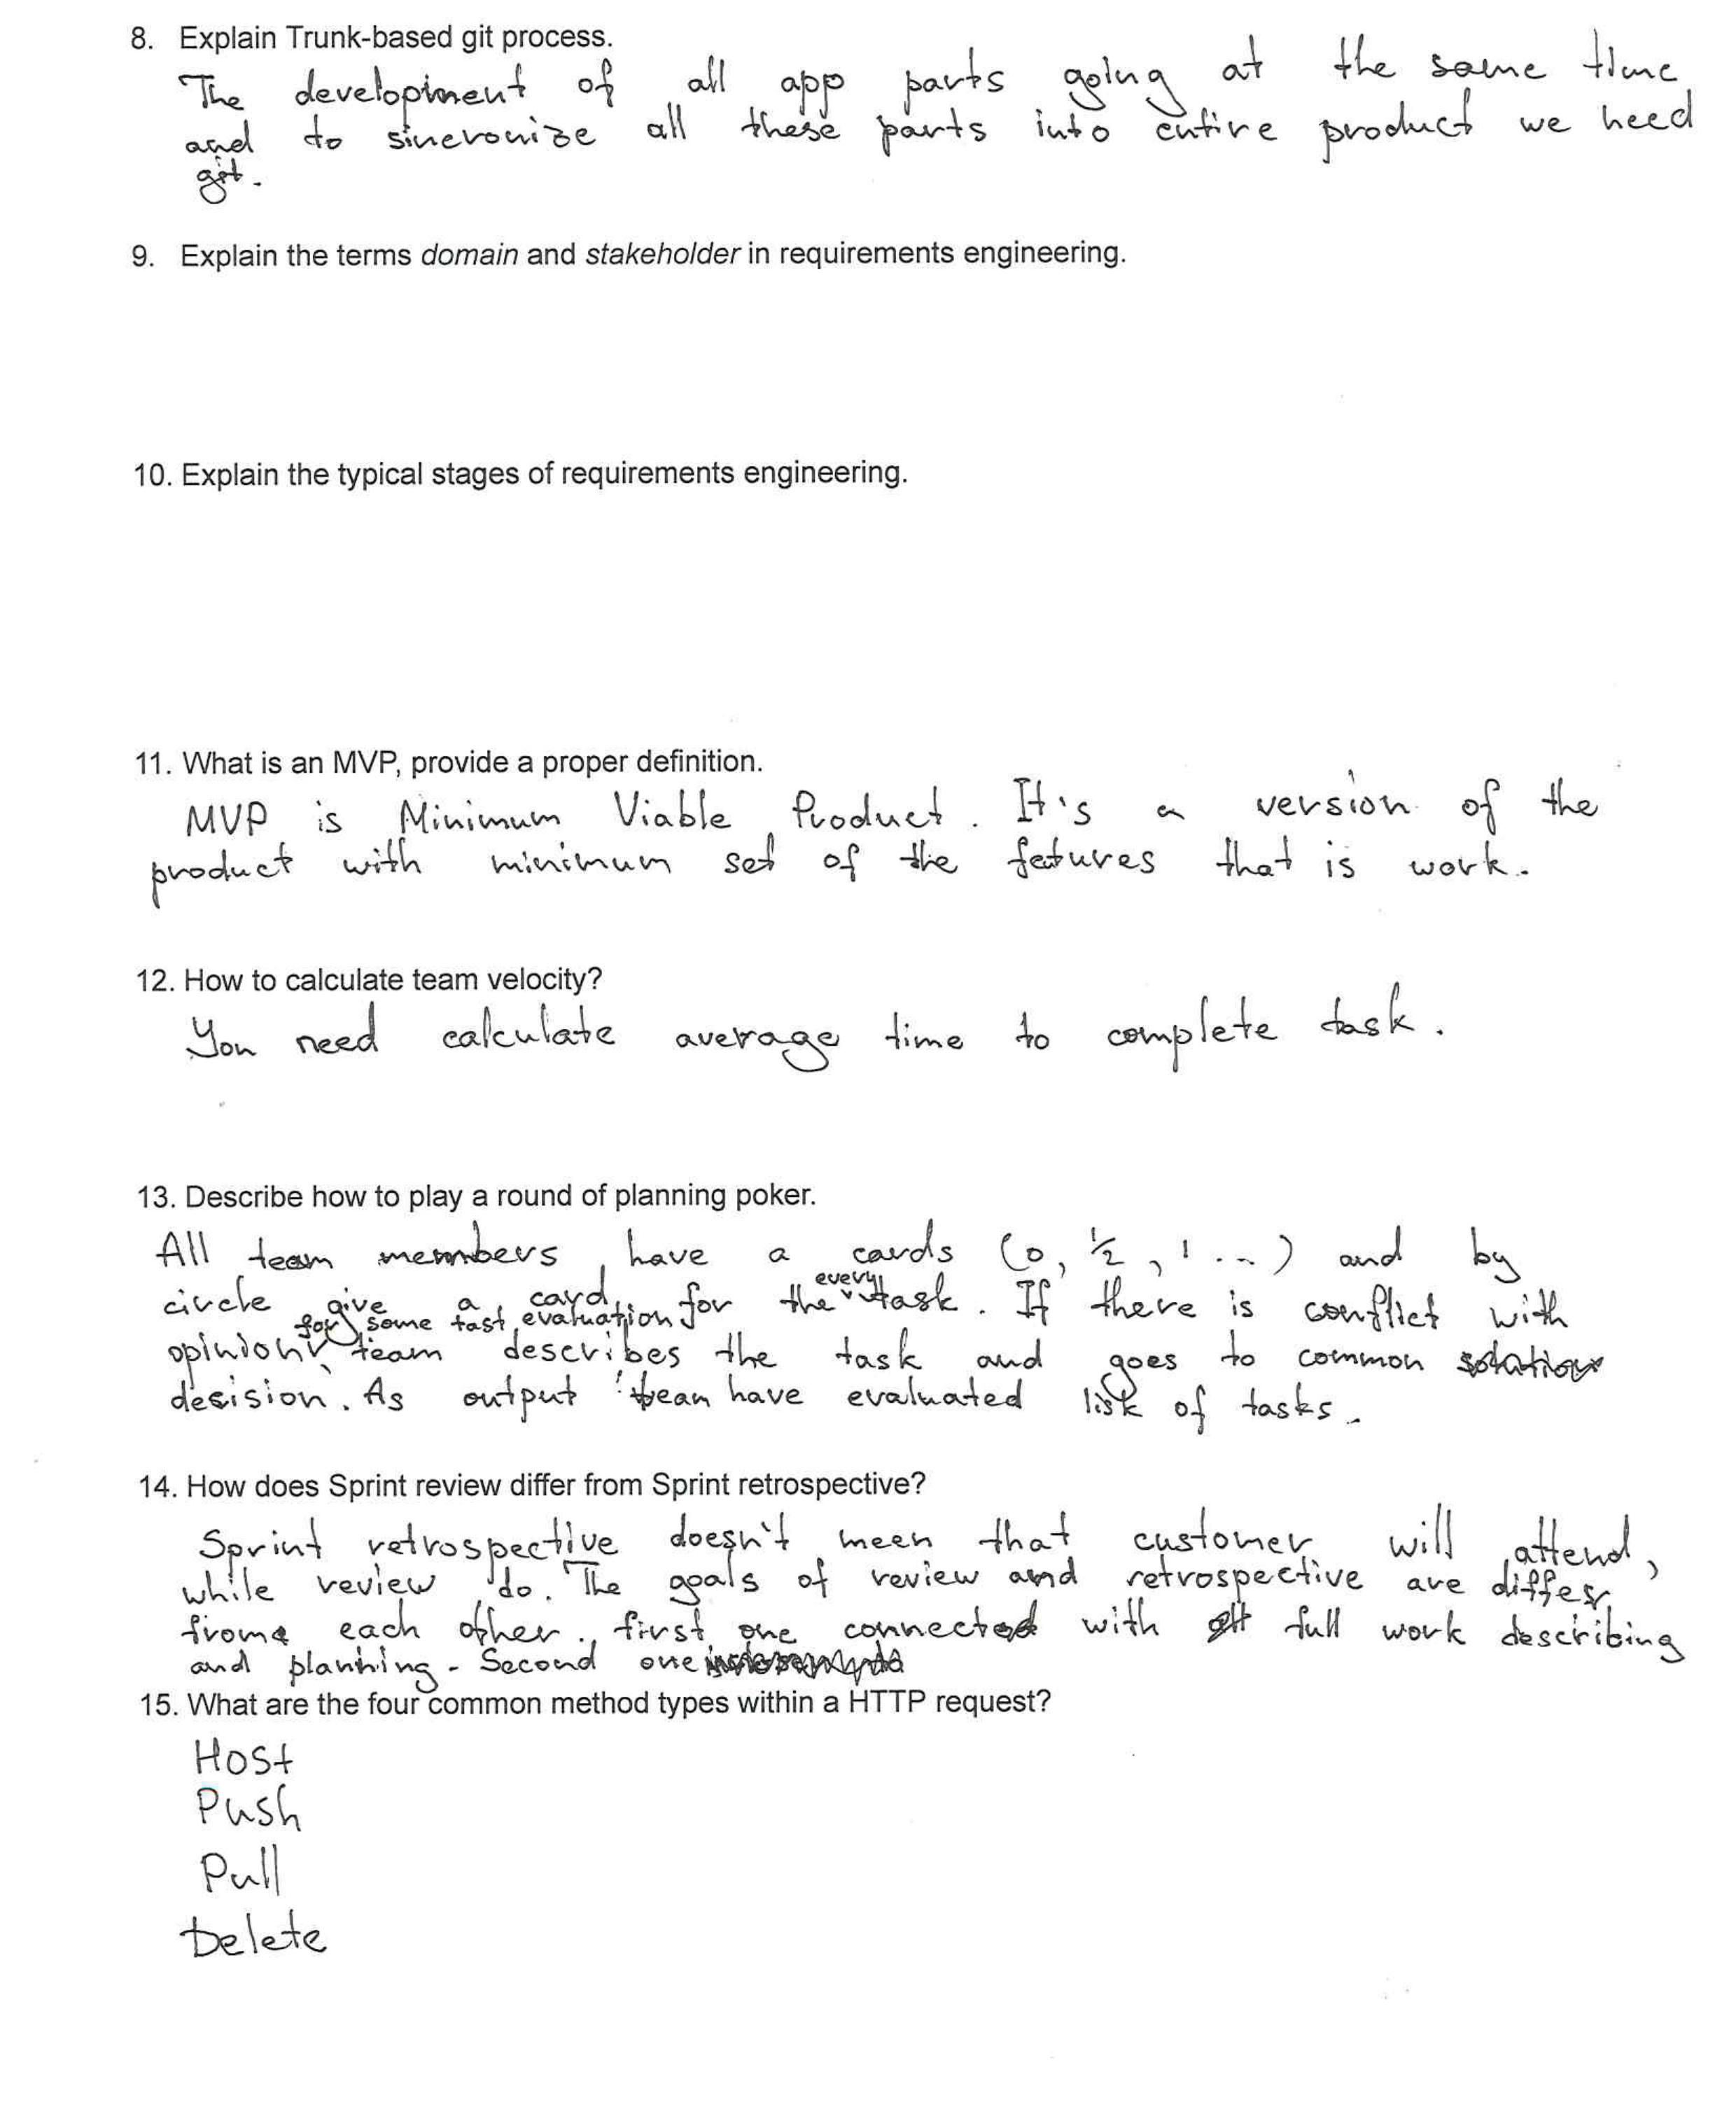 8. Explain Trunk-based git process.
The development of all app parts going at the same time
and to sincronize all these parts into entire product we need
git.
9. Explain the terms domain and stakeholder in requirements engineering.
10. Explain the typical stages of requirements engineering.
11. What is an MVP, provide a proper definition.
MVP is Minimum Viable Product. It's a version of the
product with minimum set of the features that is work.
12. How to calculate team velocity?
You need calculate average time to complete task.
13. Describe how to play a round of planning poker.
All team members have a cards (0, ½, 1 ...) and by
every
circle give a card for the task. If there is conflict with
for some task evaluation
opinion, team describes the task and goes to common
decision. As output team have evaluated list of tasks.
14. How does Sprint review differ from Sprint retrospective?
Sprint retrospective doesn't meen that customer will attend,
while review do. The goals of review and retrospective are differ
from each other, first one connected with full work describing
and planning. Second one
15. What are the four common method types within a HTTP request?
Host
Push
Pull
Delete